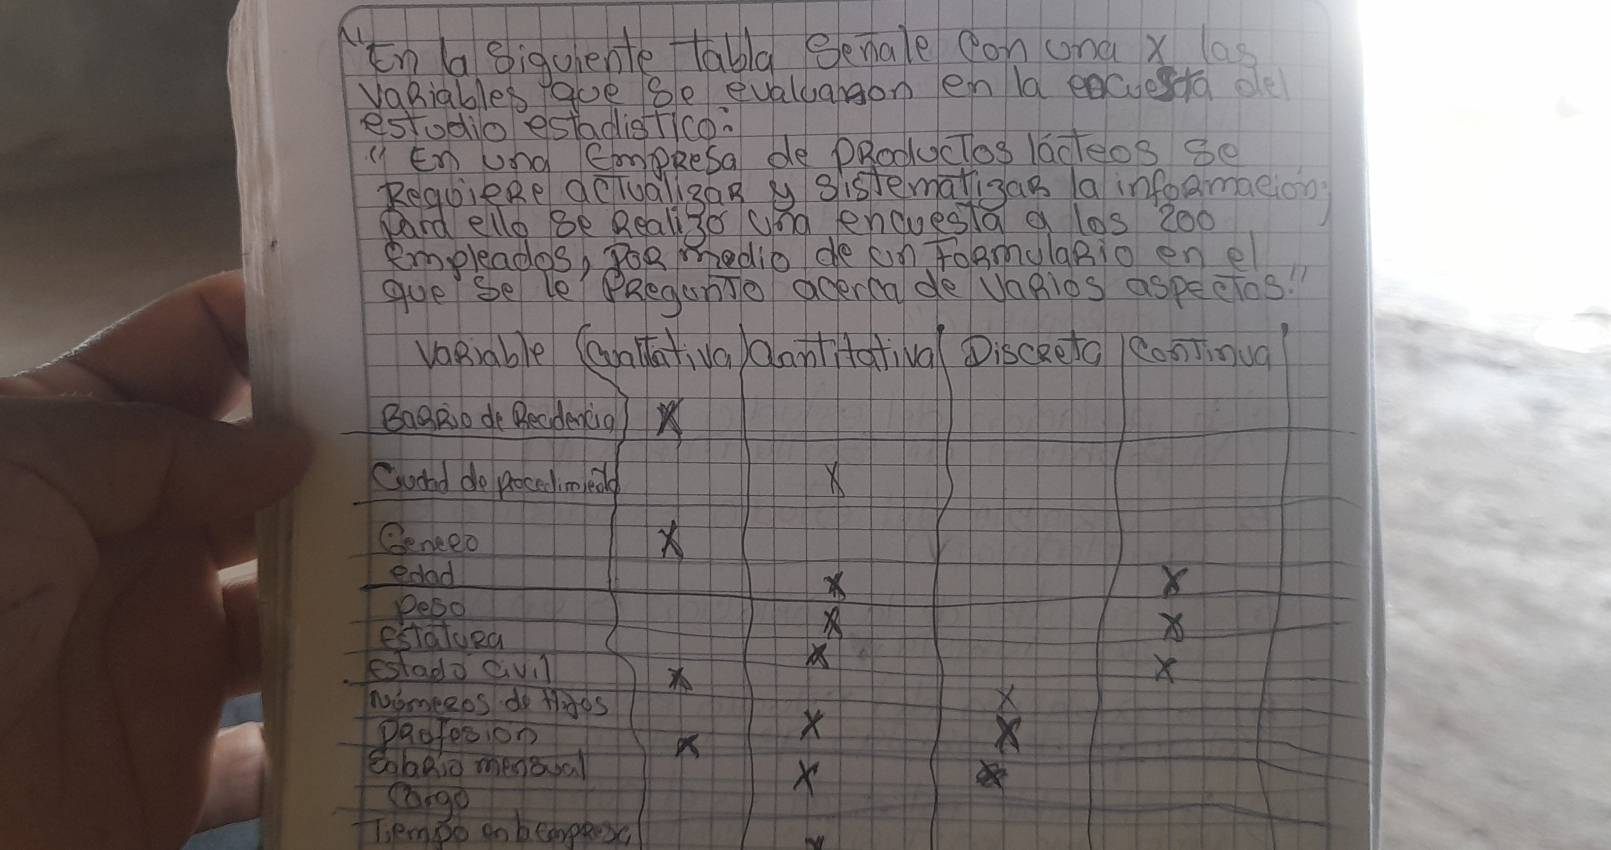 "En la siguiente tabla señale con una x las
variables que se evaluaron en la encuesta del
estudio estadistico:
"En una Empresa de productos lácteos se
Requiere actualizar y sistematizar la información,
para ello se Realizo una encuesta a los 200
empleados, por medio de un formulario en el
que se le pregunto acerca de varios aspectos."
Variable Cualitativa Cuantitativa Discreta Continua
Barrio de Recidencia X
Ciudad de procedimiento X
Genero X
edad X X
Peso X X
estatura X X
Estado Civil X
Números de Hijos X X
Profesion X X
Salario mensual X X
Cargo
Tiempo en la empresa X